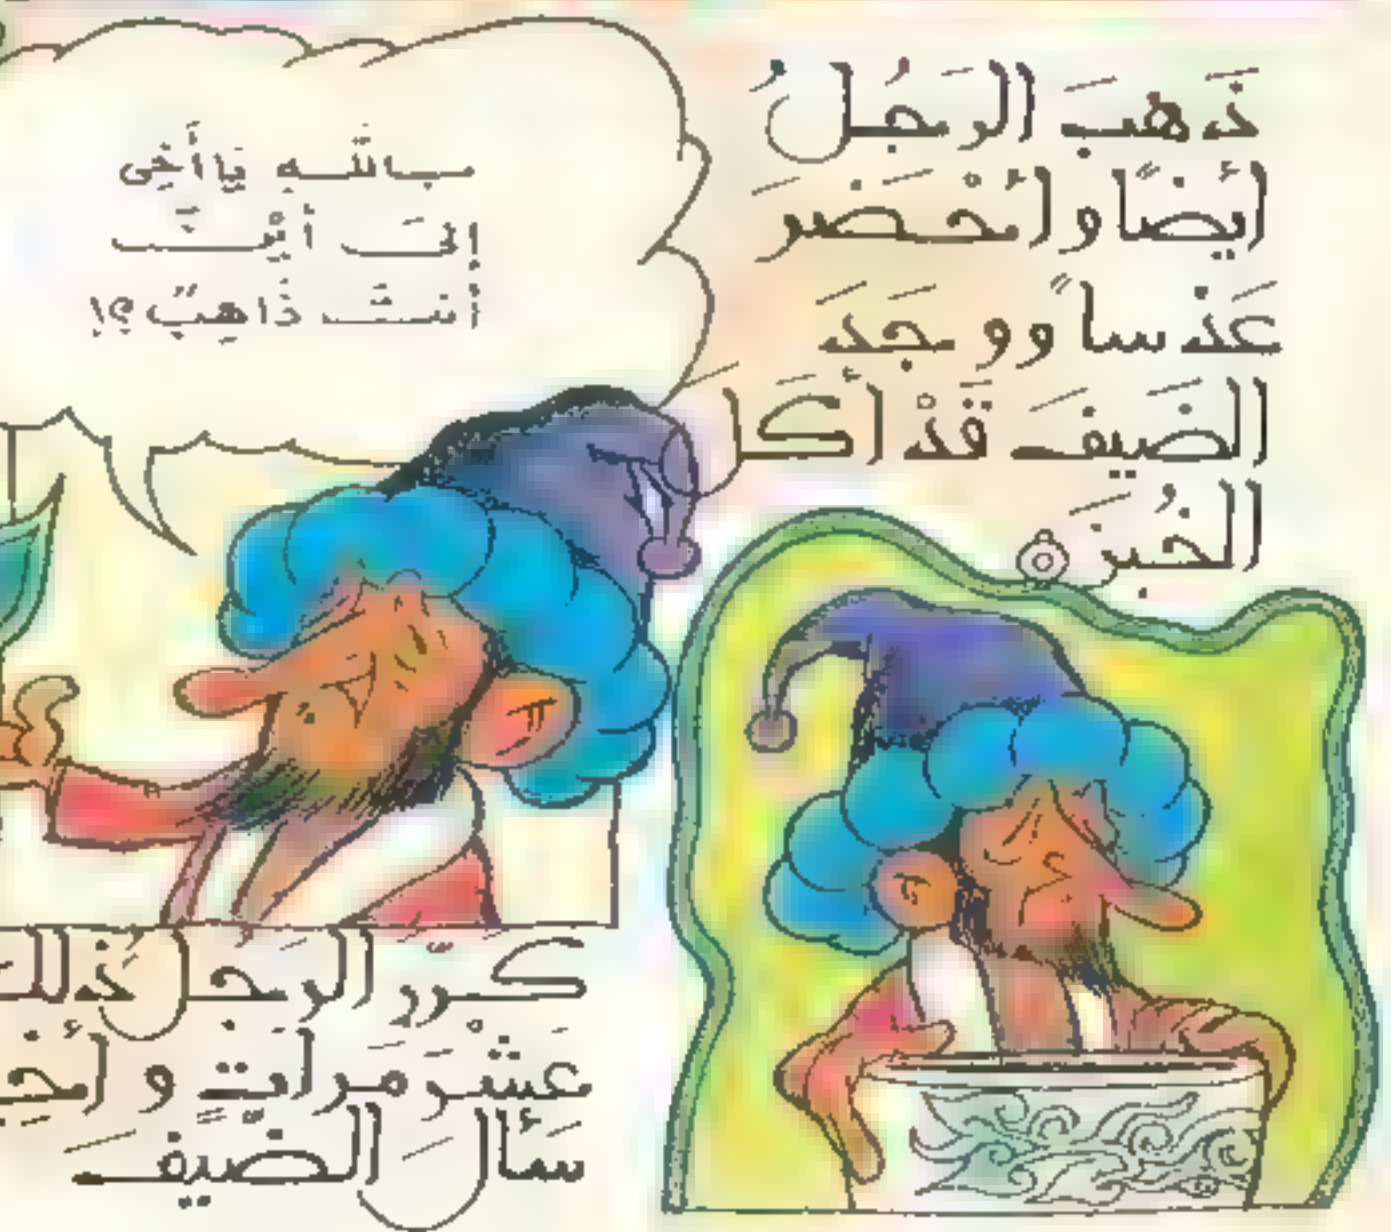 ذَهَبَ الرَجُلُ
أَيْضًا وَأَحْضَرَ
عَدَساً وَوَجَدَ
الضَيفَ قَدْ أَكَلَ
الخُبزَ
بِاللَّهِ يَا أَخِى
إِلىَ أَيْنَ
أَنتَ ذَاهِبٌ؟!
كَرّرَ الرَجُلُ ذَلك
عَشْرَ مَراتٍ وَ
سَأَلَ الضَيفَ